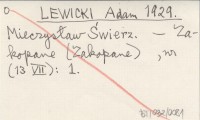 LEWICKI Adam 1929.
Mieczysław Świerz. — Za-
kopane (Zakopane), nr
(13 VII): 1.